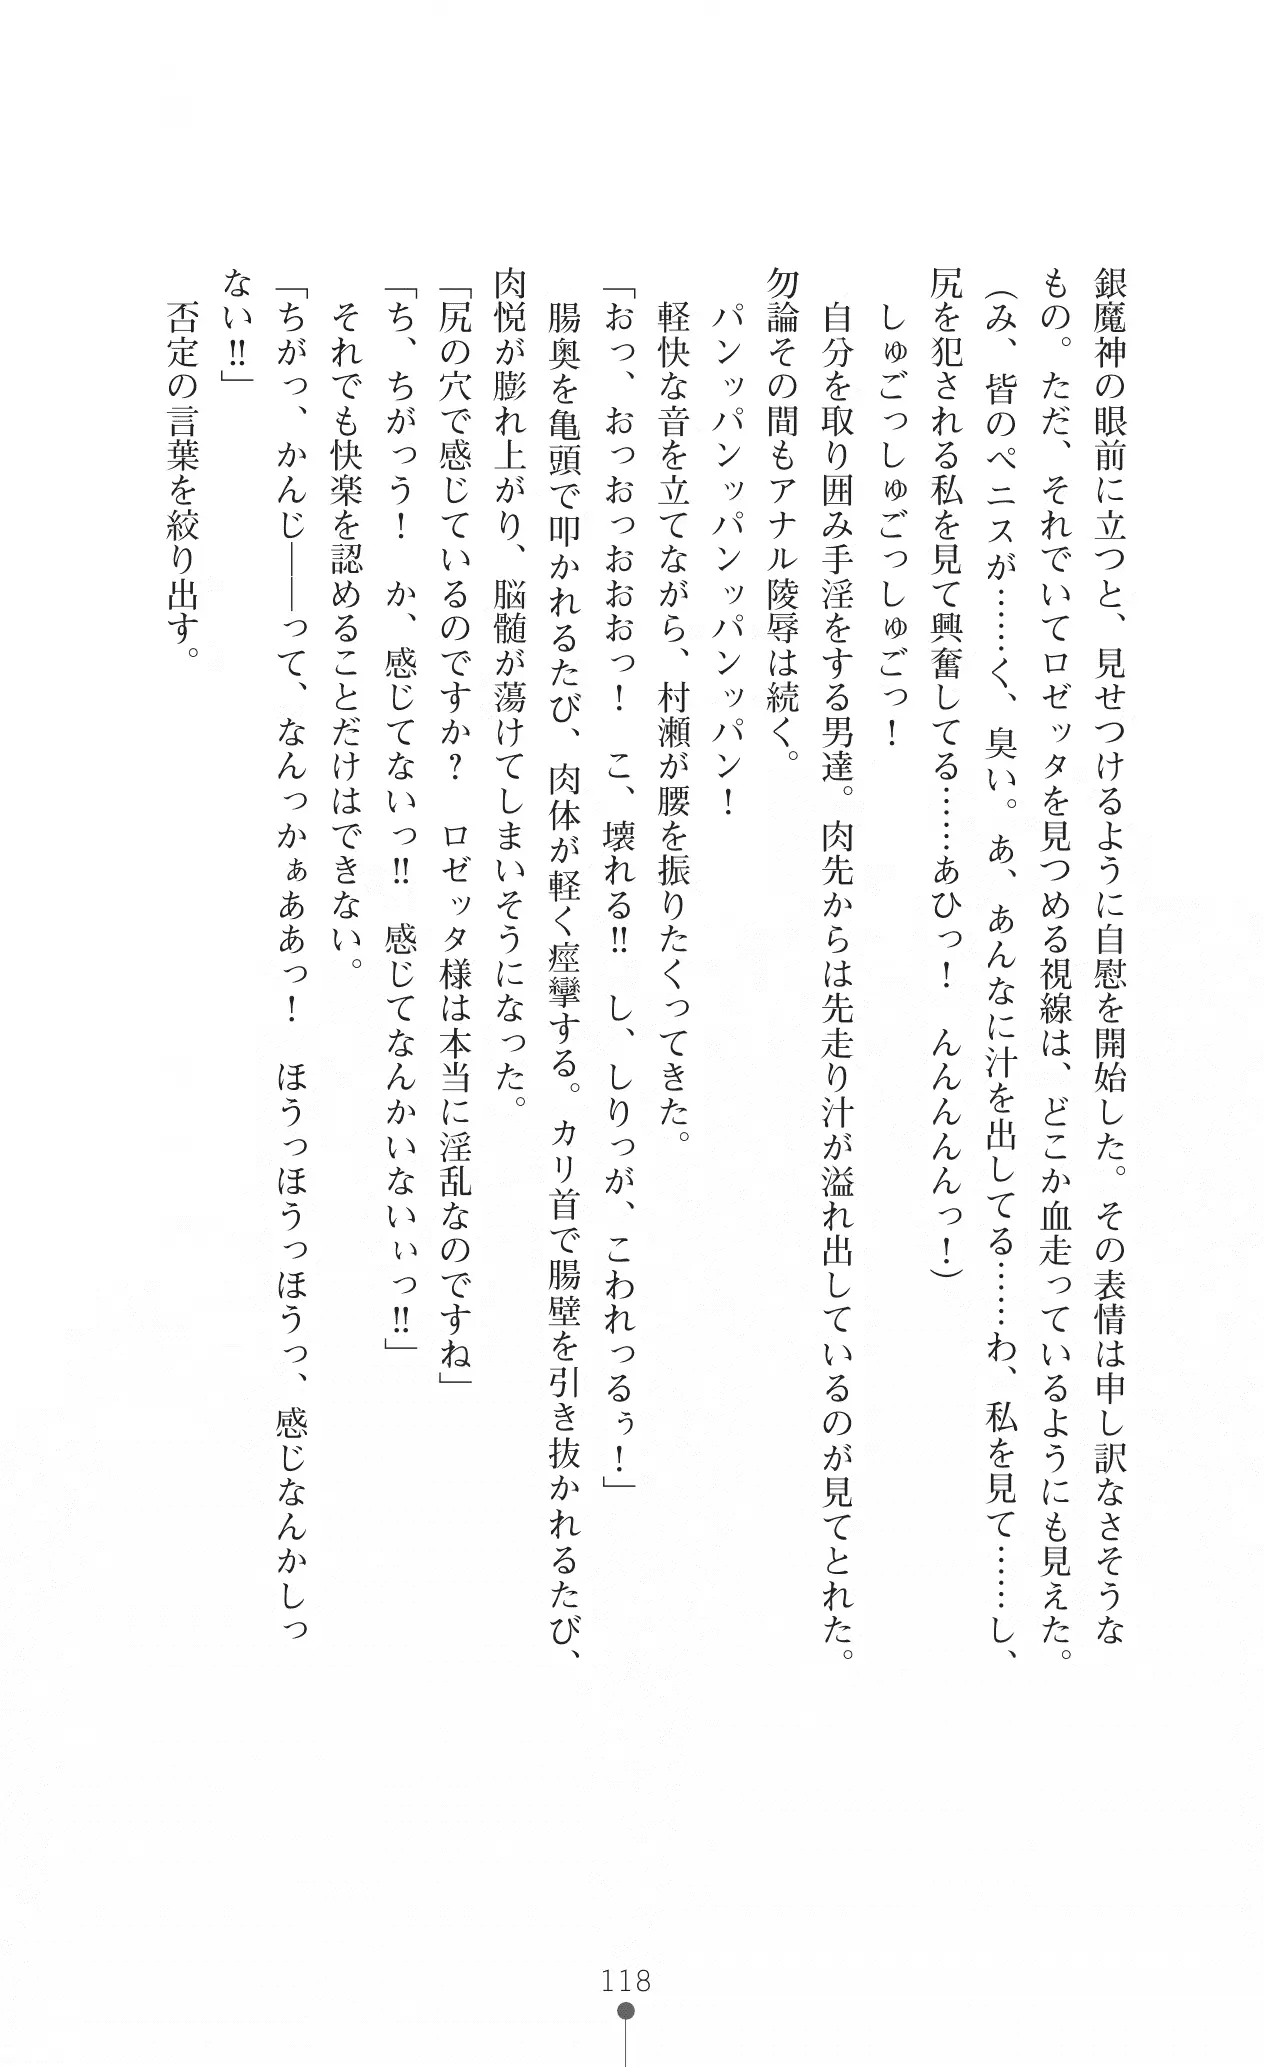 銀魔神の眼前に立つと、見せつけるように自慰を開始した。その表情は申し訳なさそうな
もの。ただ、それでいてロゼッタを見つめる視線は、どこか血走っているようにも見えた。
（み、皆のペニスが……く、臭い。あ、あんなに汁を出してる……わ、私を見て……し、
尻を犯される私を見て興奮してる……あひっ！　んんんんんっ！）
　しゅごっしゅごっしゅごっ！
　自分を取り囲み手淫をする男達。肉先からは先走り汁が溢れ出しているのが見てとれた。
勿論その間もアナル陵辱は続く。
　パンッパンッパンッパンッパン！
　軽快な音を立てながら、村瀬が腰を振りたくってきた。
「おっ、おっおっおおおっ！　こ、壊れる‼　し、しりっが、こわれっるぅ！」
　腸奥を亀頭で叩かれるたび、肉体が軽く痙攣する。カリ首で腸壁を引き抜かれるたび、
肉悦が膨れ上がり、脳髄が蕩けてしまいそうになった。
「尻の穴で感じているのですか？　ロゼッタ様は本当に淫乱なのですね」
「ち、ちがっう！　か、感じてないっ‼　感じてなんかいないぃっ‼」
　それでも快楽を認めることだけはできない。
「ちがっ、かんじ――って、なんっかぁああっ！　ほうっほうっほうっ、感じなんかしっ
ない‼」
　否定の言葉を絞り出す。
118